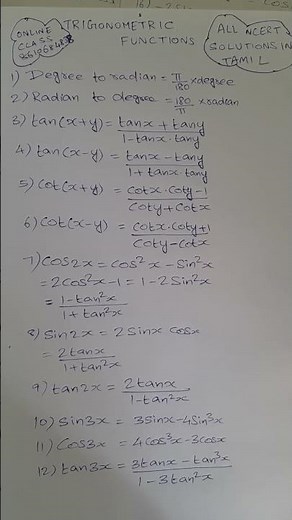 ONLINE CLASS
TRIGONOMETRIC FUNCTIONS
ALL NCERT SOLUTIONS IN TAMIL
1) Degree to radian = π/180 × degree
2) Radian to degree = 180/π × radian
3) tan(x+y) = tanx + tany / 1 - tanx · tany
4) tan(x-y) = tanx - tany / 1 + tanx tany
5) cot(x+y) = cotx · coty - 1 / coty + cotx
6) cot(x-y) = cotx · coty + 1 / coty - cotx
7) cos2x = cos²x - sin²x
= 2cos²x - 1 = 1 - 2sin²x
= 1 - tan²x / 1 + tan²x
8) sin2x = 2sinx cosx
= 2tanx / 1 + tan²x
9) tan2x = 2tanx / 1 - tan²x
10) sin3x = 3sinx - 4sin³x
11) cos3x = 4cos³x - 3cosx
12) tan3x = 3tanx - tan³x / 1 - 3tan²x